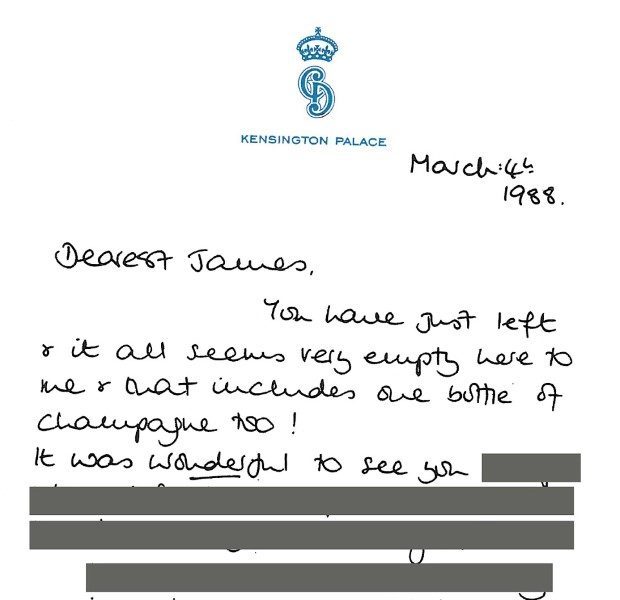 KENSINGTON PALACE
March: 4th
1988.
Dearest James,
You have just left
& it all seems very empty here to
me & that includes one bottle of
champagne too!
It was wonderful to see you